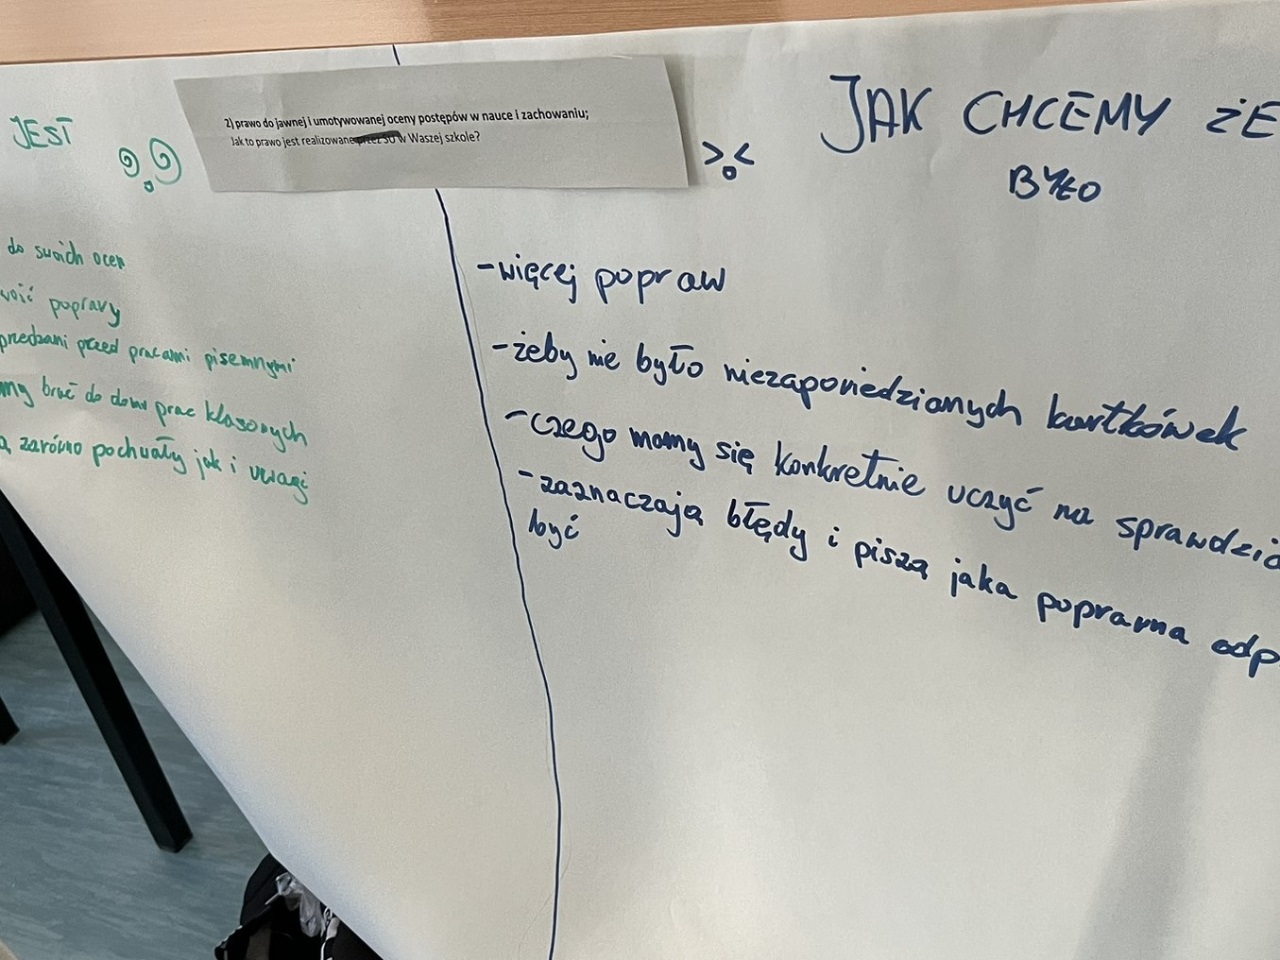 JEST
2) prawo do jawnej i umotywowanej oceny postępów w nauce i zachowaniu;
Jak to prawo jest realizowane przez SU w Waszej szkole?
JAK CHCEMY ŻE
BYŁO
do swoich ocen
poprawy
przed pracami pisemnymi
brać do domu prac klasowych
zarówno pochwały jak i uwagi
-więcej popraw
-żeby nie było niezapowiedzianych kartkówek
-czego mamy się konkretnie uczyć na sprawdzia
-zaznaczają błędy i piszą jaka poprawna odp
być